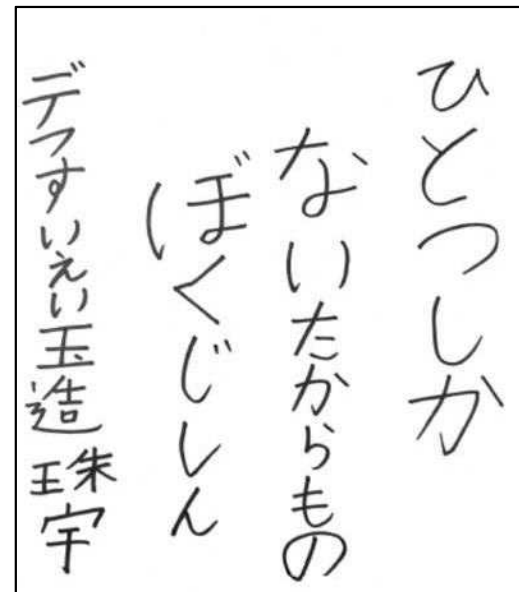 ひとつしか
ないたからもの
ぼくじしん
デフすいえい玉造 珠宇